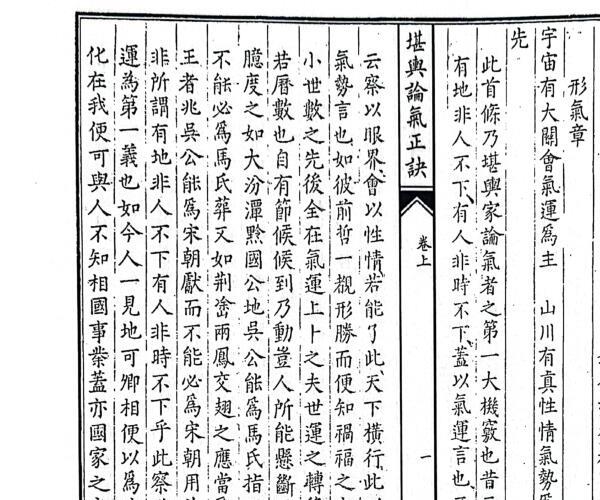 形氣章
宇宙有大關會氣運為主　山川有真性情氣勢為
先
此首條乃堪輿家論氣者之第一大機竅也昔
有地非人不下有人非時不下蓋以氣運言也
堪輿論氣正訣
卷上
一
云察以眼界會以性情若能了此天下橫行此
氣勢言也如彼前哲一覩形勝而便知禍福之
小世數之先後全在氣運上卜之夫世運之轉
若曆數也自有節候候到乃動豈人所能懸斷
臆度之如大汾潭黔國公地吳公能為馬氏指
不能必為馬氏葬又如荆畲兩鳳交翅之應當
王者兆吳公能為宋朝獻而不能必為宋朝用
非所謂有地非人不下有人非時不下乎此察
運為第一義也如今人一見地可卿相便以為
化在我便可與人不知相國事業蓋亦國家之